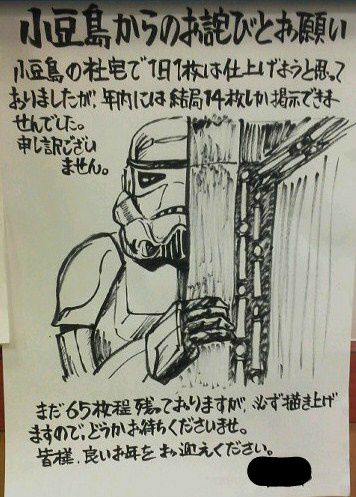 小豆島からのお詫びとお願い
小豆島の社宅で1日1枚は仕上げようと思って
おりましたが、年内には結局14枚しか掲示できま
せんでした。
申し訳ござい
ません。
まだ65枚程残っておりますが、必ず描き上げ
ますので、どうかお待ちくださいませ。
皆様、良いお年をお迎えください。